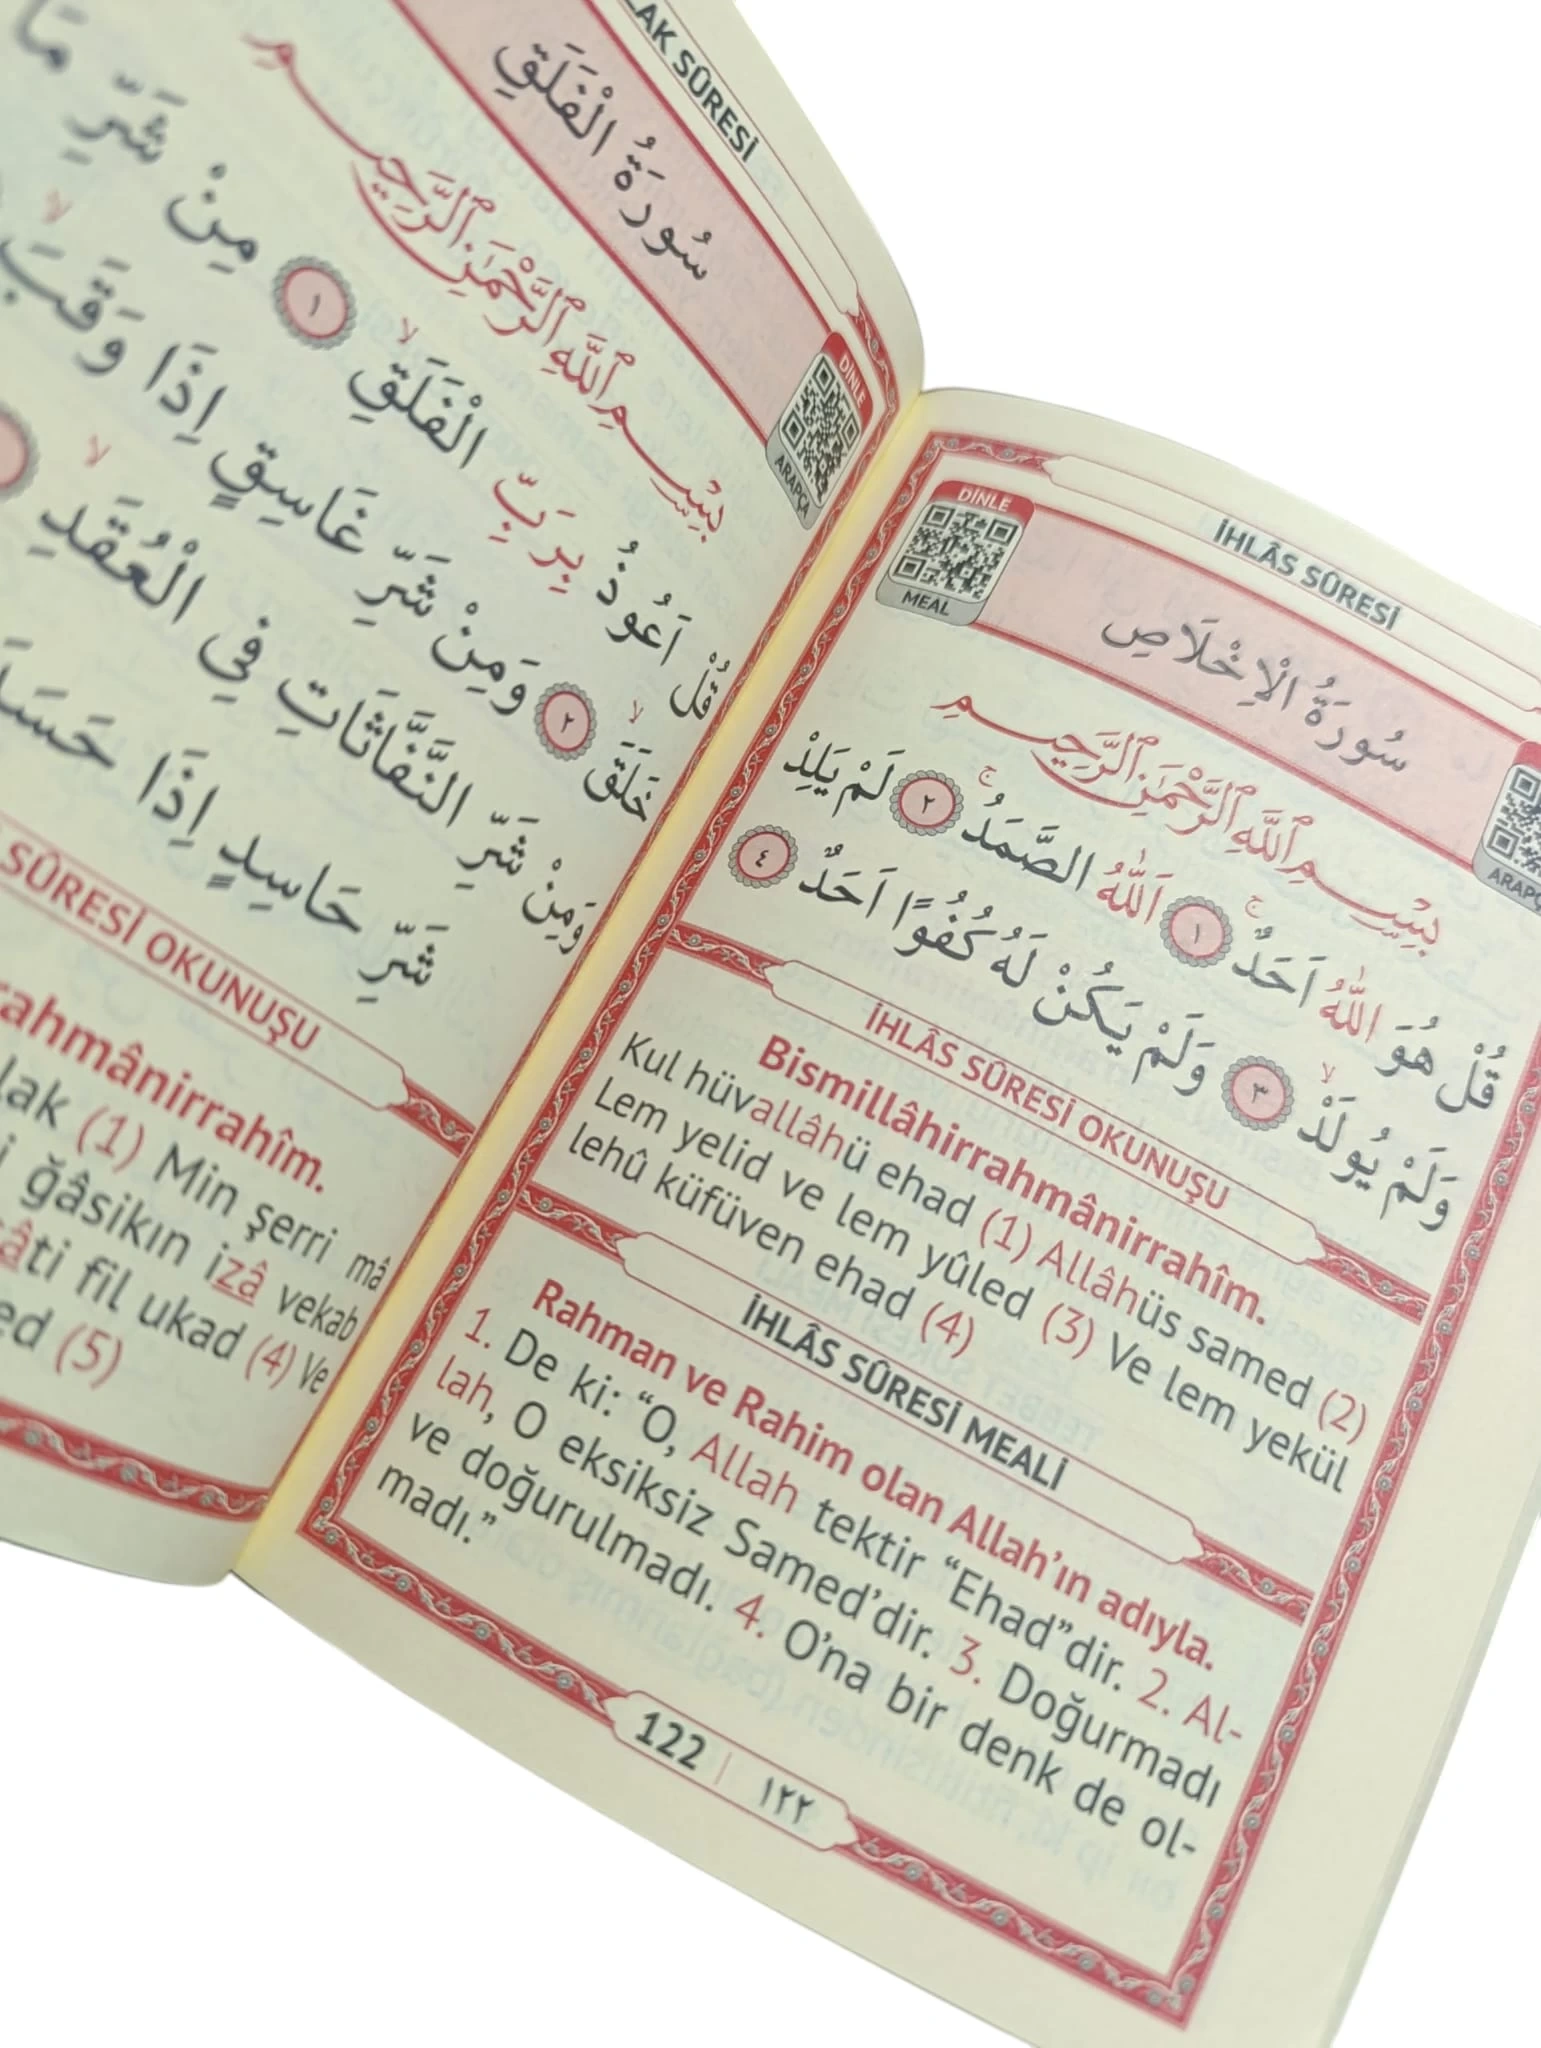 İHLÂS SÛRESİ
DİNLE
MEAL
سُورَةُ الْاِخْلَاصِ
بِسْمِ ٱللَّهِ ٱلرَّحْمَٰنِ ٱلرَّحِيمِ
قُلْ هُوَ اللّٰهُ اَحَدٌۚ ١ اَللّٰهُ الصَّمَدُۚ ٢ لَمْ يَلِدْ
وَلَمْ يُولَدْۙ ٣ وَلَمْ يَكُنْ لَهُ كُفُوًا اَحَدٌ ٤
İHLÂS SÛRESİ OKUNUŞU
Bismillâhirrahmânirrahîm.
Kul hüvallâhü ehad (1) Allâhüs samed (2)
Lem yelid ve lem yûled (3) Ve lem yekül
lehû küfüven ehad (4)
İHLÂS SÛRESİ MEALİ
Rahman ve Rahim olan Allah’ın adıyla.
1. De ki: “O, Allah tektir “Ehad”dir. 2. Al-
lah, O eksiksiz Samed’dir. 3. Doğurmadı
ve doğurulmadı. 4. O’na bir denk de ol-
madı.”
122 | ١٢٢
LAK SÛRESİ
سُورَةُ الْفَلَقِ
DİNLE
ARAPÇA
بِسْمِ ٱللَّهِ ٱلرَّحْمَٰنِ ٱلرَّحِيمِ
قُلْ اَعُوذُ بِرَبِّ الْفَلَقِۙ ١ مِنْ شَرِّ مَا
خَلَقَۙ ٢ وَمِنْ شَرِّ غَاسِقٍ اِذَا وَقَبَۙ
وَمِنْ شَرِّ النَّفَّاثَاتِ فِي الْعُقَدِۙ
شَرِّ حَاسِدٍ اِذَا
SÛRESİ OKUNUŞU
rahmânirrahîm.
lak (1) Min şerri mâ
i ğâsikın izâ vekab
âti fil ukad (4) Ve
ed (5)